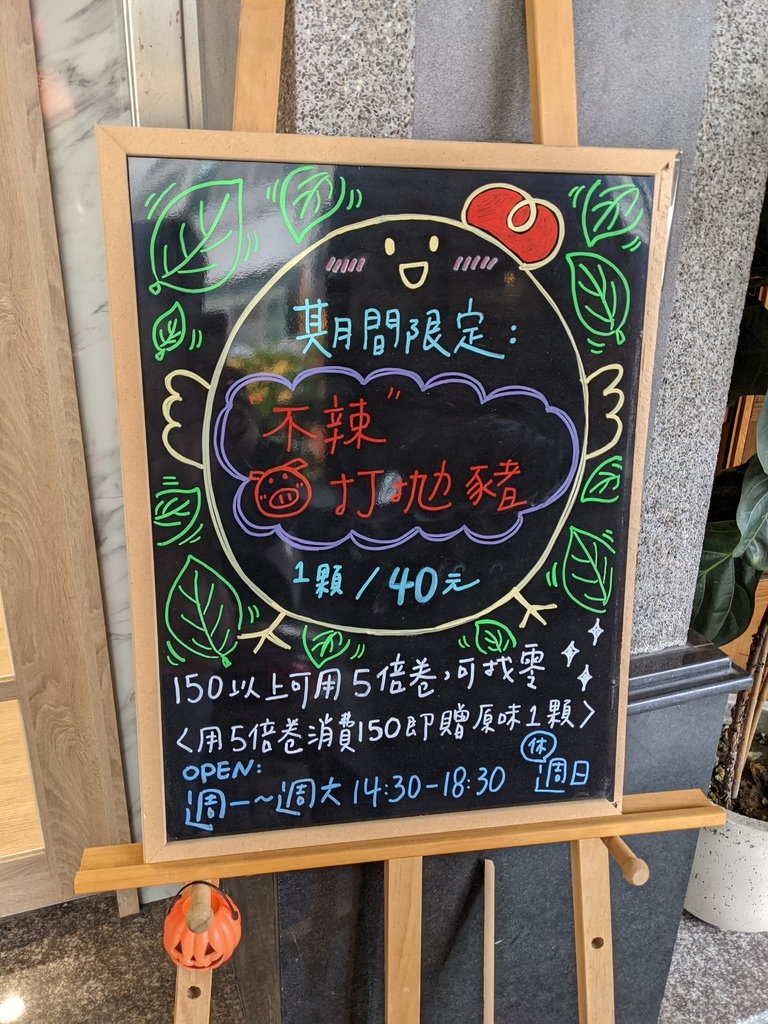 期間限定：
"不辣"
打拋豬
1顆/40元
150以上可用5倍卷，可找零
<用5倍卷消費150即贈原味1顆>
OPEN:
週一～週六14:30-18:30 休週日